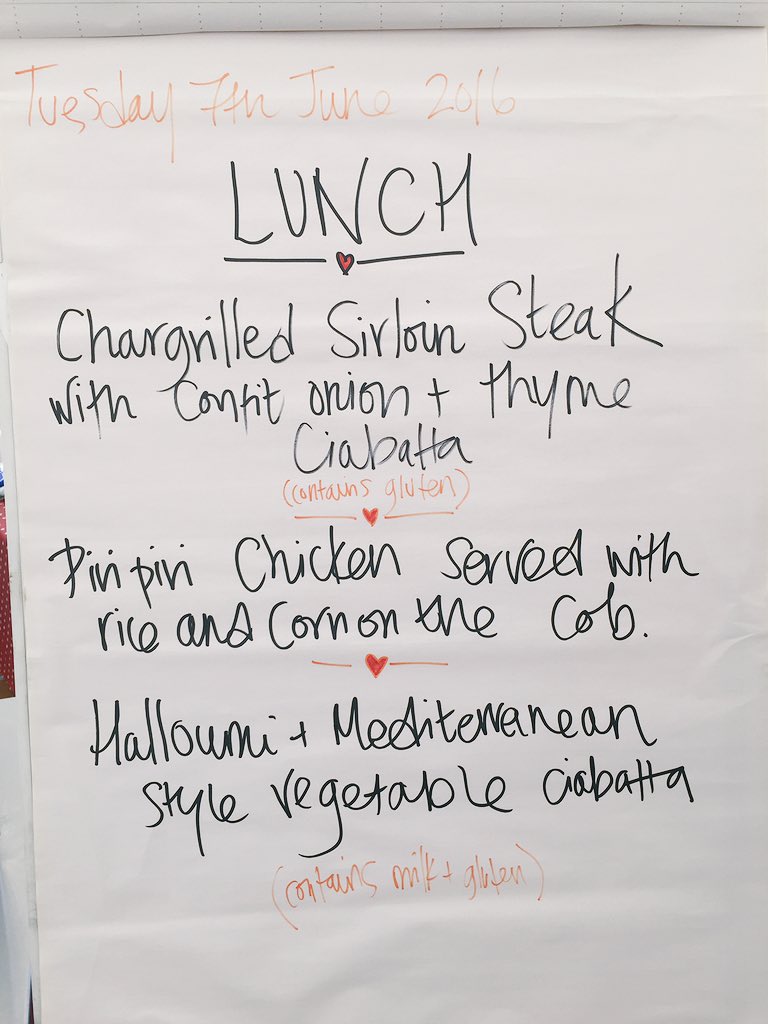 Tuesday 7th June 2016
LUNCH
Chargrilled Sirloin Steak
with Confit onion + thyme
Ciabatta
(contains gluten)
Piri piri Chicken served with
rice and Corn on the Cob.
Halloumi + Mediterranean
style vegetable ciabatta
(contains milk + gluten)